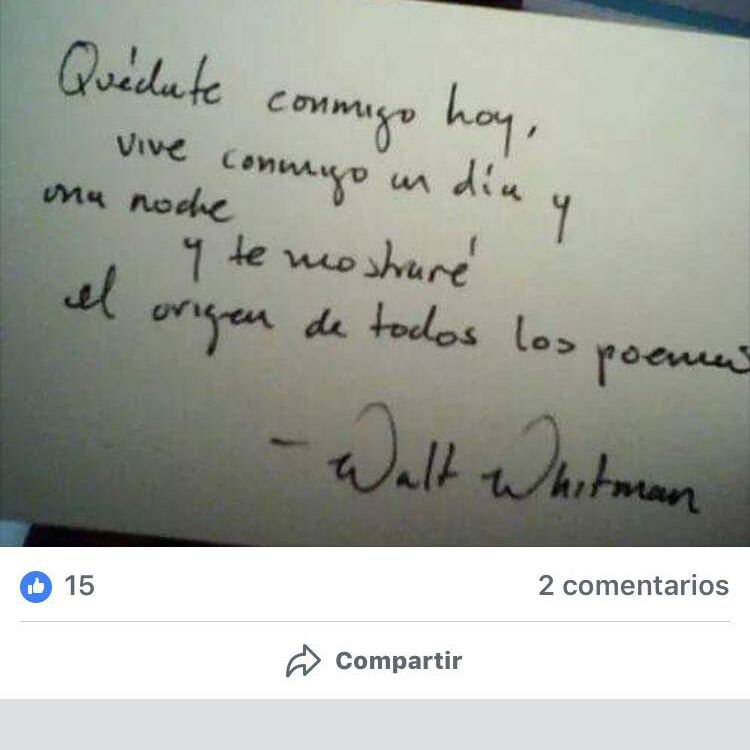 Quédate conmigo hoy,
vive conmigo un día y
una noche
y te mostraré
el origen de todos los poemas
- Walt Whitman
15
2 comentarios
Compartir